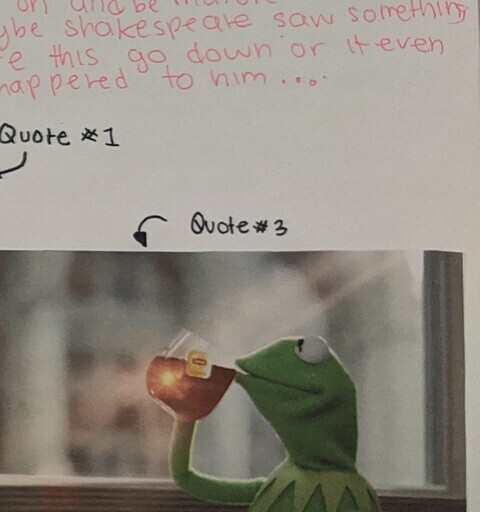 on and be
ybe shakespeare saw something
e this go down or it even
happered to him ....
Quote #1
Quote #3